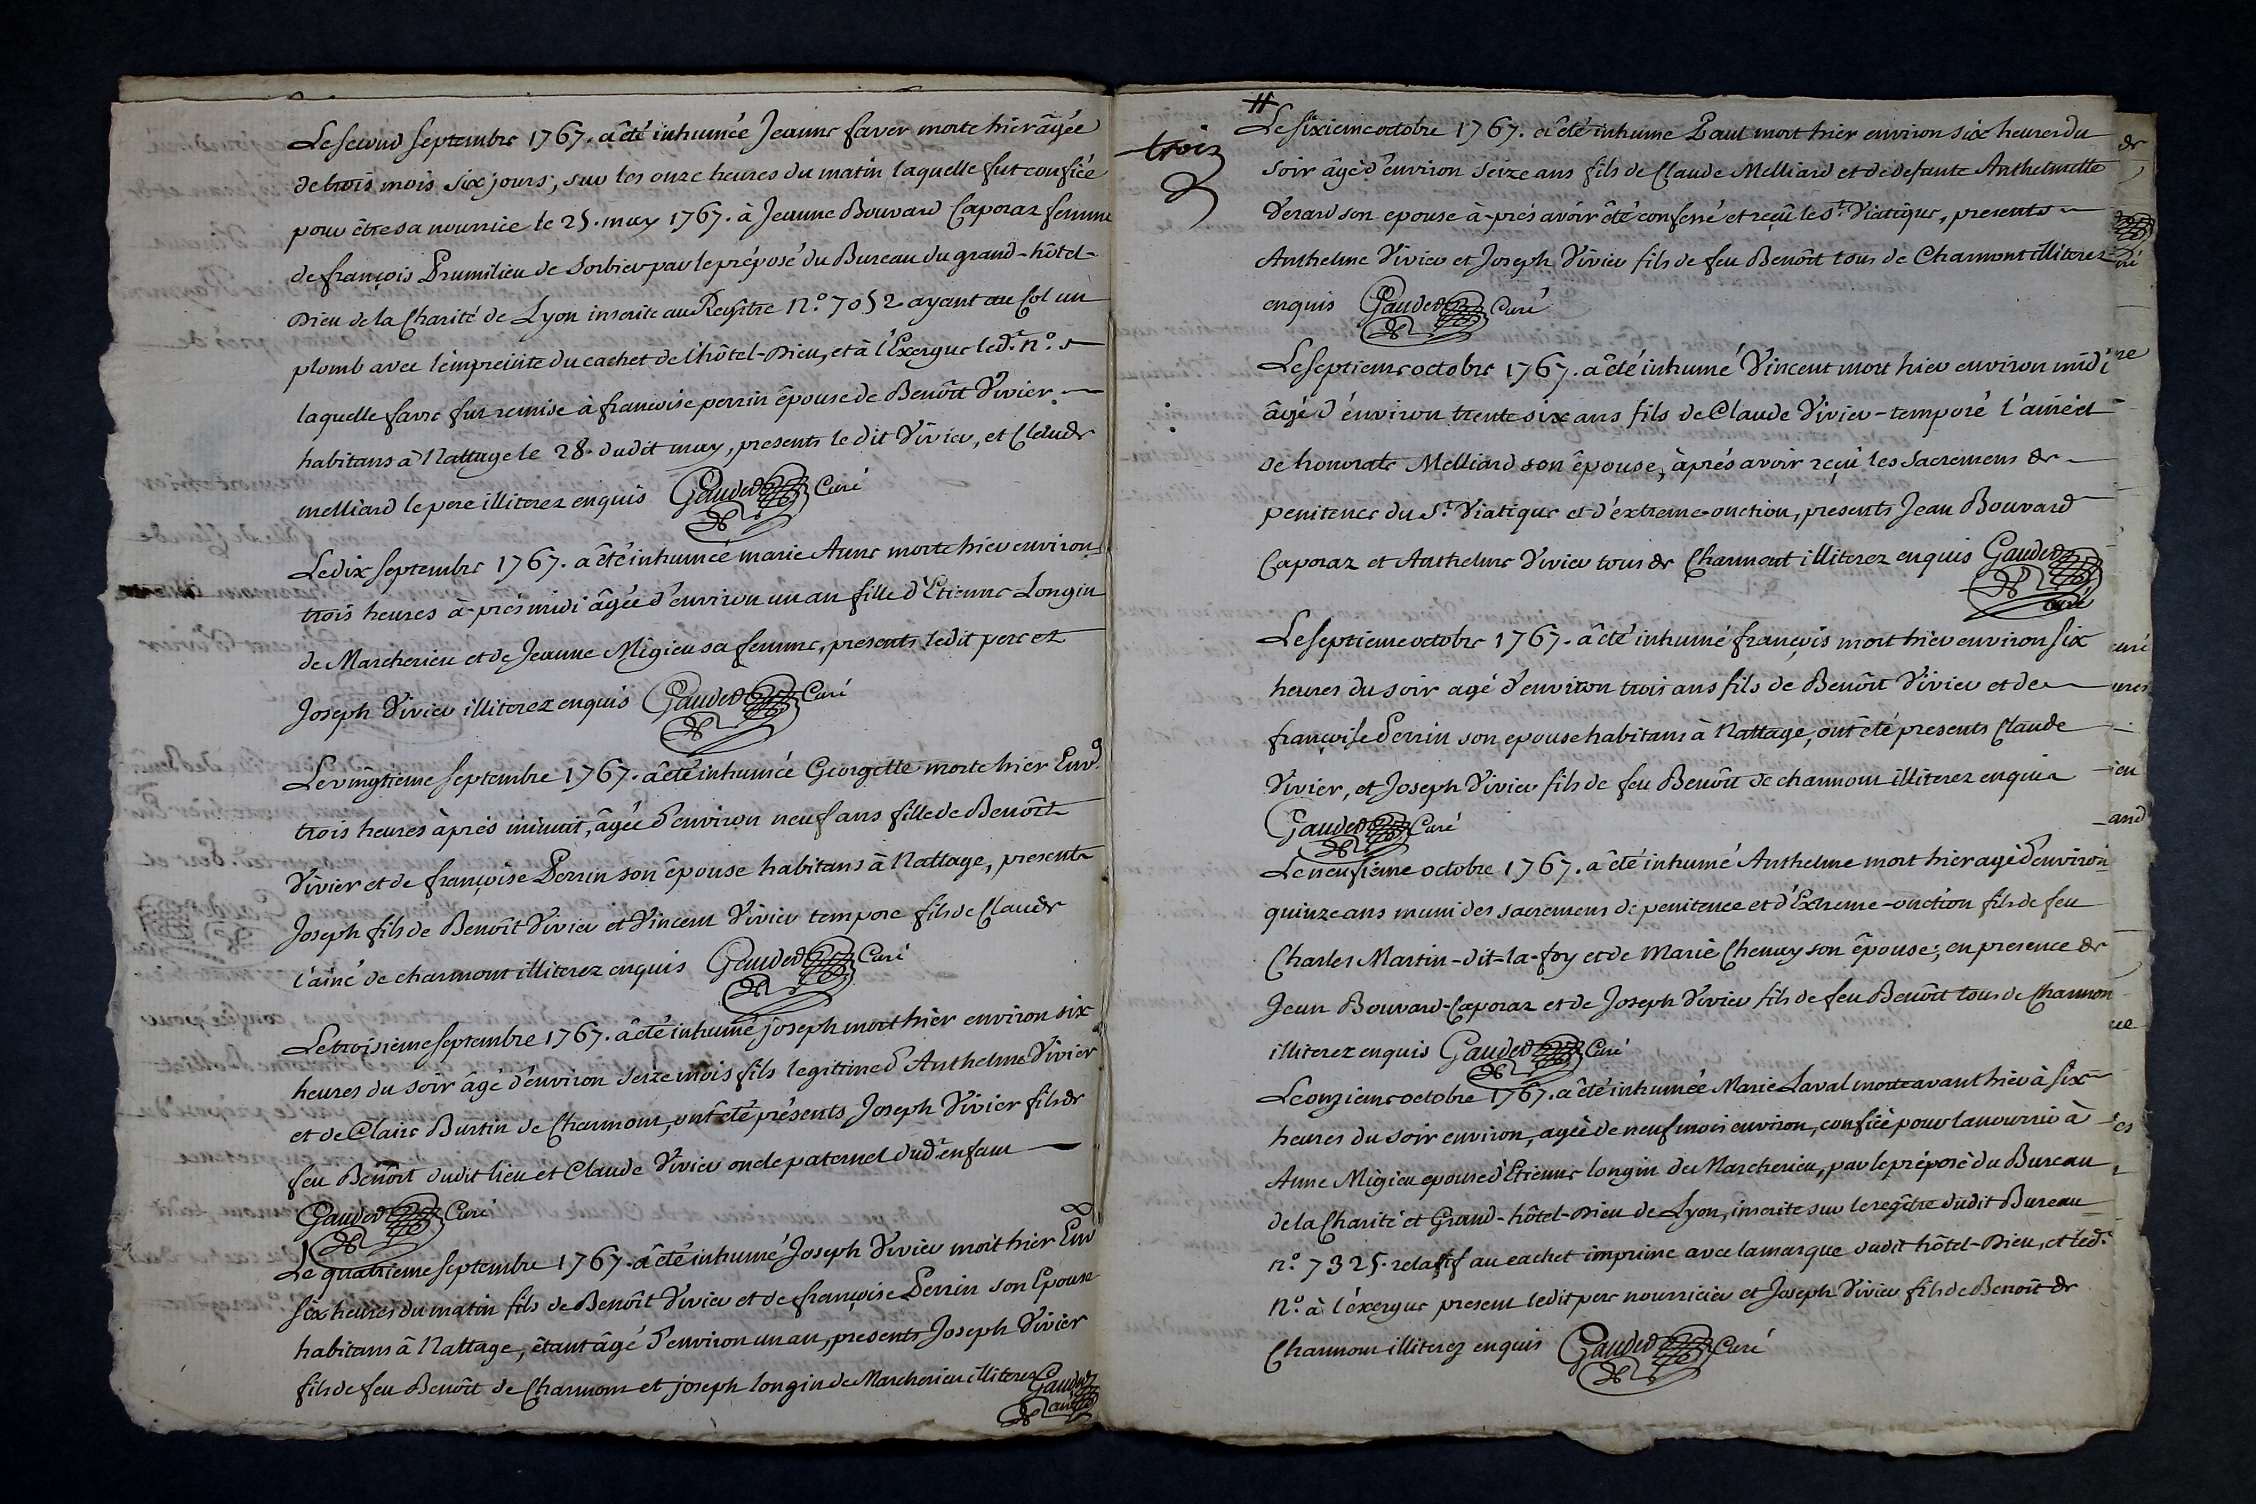 Le second septembre 1767. a êté inhumée Jeanne faver morte hier âgée
de trois mois six jours, sur les onze heures du matin laquelle fut confiée
pour être sa nourrice le 25. may 1767. à Jeanne Bouvard Caporaz femme
de françois Prumilieu de Sorbier par le préposé du Bureau du grand-hôtel-
Dieu de la Charité de Lyon inscrite au Regître N.o 7052 ayant au Col un
plomb avec l'empreinte du cachet de l'hôtel-Dieu, et à l'Exergue led.t n.o
laquelle favre fut remise à françoise perrin épouse de Benoît Vivier
habitans à Nattage le 28. dudit may, presents le dit Vivier, et Claude
melliard le pere illiterez enquis Gauded Curé
Le dix septembre 1767. a êté inhumée marie Anne morte hier environ
trois heures à-prés midi âgée d'environ un an fille d'Etienne Longin
de Marcherieu et de Jeanne Migieu sa femme, presents ledit pere et
Joseph Vivier illiterez enquis Gauded Curé
Le vingtieme septembre 1767. a êté inhumée Georgette morte hier Env.o
trois heures àprés minuit, âgée d'environ neuf ans fille de Benoît
Vivier et de françoise Perrin son êpouse habitans à Nattage, presents
Joseph fils de Benoît Vivier et Vincent Vivier tempore fils de Claude
l'aîné de charmont illiterez enquis Gauded Curé
Le troisieme septembre 1767. a êté inhumé joseph mort hier environ six
heures du soir âgé d'environ seize mois fils legitime d'Anthelme Vivier
et de Claire Burtin de Charmont, ont eté présents Joseph Vivier fils de
feu Benoît dudit lieu et Claude Vivier oncle paternel dud.t enfant
Gauded Curé
Le quatrieme septembre 1767. a êté inhumé Joseph Vivier mort hier Env
six heures du matin fils de Benoît Vivier et de françoise Perrin son Epouse
habitans à Nattage, êtant âgé d'environ un an, presents Joseph Vivier
fils de feu Benoît de Charmont et joseph longin de Marcherieu illiterez Gauded
Curé
trois
Le sixieme octobre 1767. a êté inhume Paul mort hier environ six heures du
soir âgé d'environ seize ans fils de Claude Melliard et de defunte Anthelmette
Verard son epouse à-prés avoir êté confessé et reçû le S.t Viatique, presents
Anthelme Vivier et Joseph Vivier fils de feu Benoît tous de Charmont illiterez
enquis Gauded Curé
Le septieme octobre 1767. a êté inhumé Vincent mort hier environ midi
âgé d'environ trente six ans fils de Claude Vivier-temporé l'ainé et
de honorate Melliard son êpouse, àprés avoir reçû les Sacremens de
penitence du S.t Viatique et d'éxtreme-onction, presents Jean Bouvard
Caporaz et Anthelme Vivier tous de Charmont illiterez enquis Gauded
curé
Le septieme octobre 1767. a êté inhumé françois mort hier environ six
heures du soir agé d'environ trois ans fils de Benoît Vivier et de
françoise Perrin son epouse habitans à Nattage, ont êté presents Claude
Vivier, et Joseph Vivier fils de feu Benoît de charmont illiterez enquis
Gauded Curé
Le neufieme octobre 1767. a êté inhumé Anthelme mort hier agé d'environ
quinze ans muni des sacremens de penitence et d'Extreme-onction fils de feu
Charles Martin-dit-la-foy et de Marie Chenay son êpouse; en presence de
Jean Bouvard-Caporaz et de Joseph Vivier fils de feu Benoît tous de Charmon
illiterez enquis Gauded Curé
Le onzieme octobre 1767. a êté inhumée Marie Laval morte avant hier à six
heures du soir environ, agée de neuf mois environ, confiée pour la nourrir à
Anne Migieu epouse d'Etienne longin de Marcherieu, par le préposé du Bureau
de la Charité et Grand-hôtel-Dieu de Lyon, inscrite sur le regître dudit Bureau
n.o 7325. relatif au cachet imprimé avec la marque dudit hôtel-Dieu, et led.t
N.o à l'éxergue present ledit pere nourricier et Joseph Vivier fils de Benoît de
Charmont illiterez enquis Gauded Curé